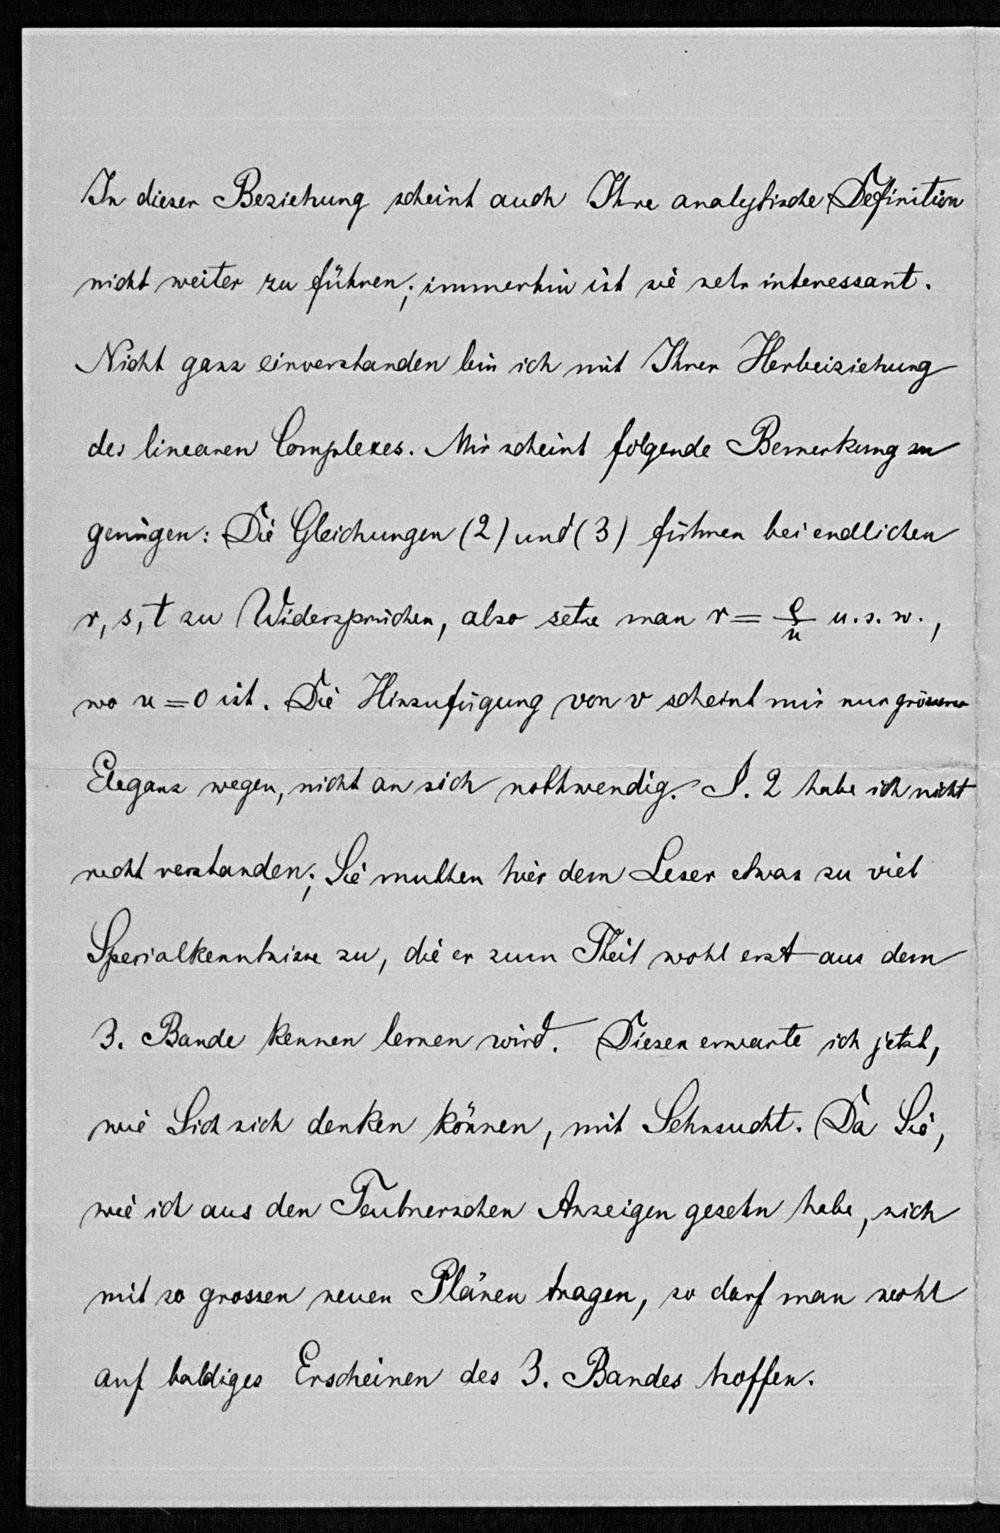 In dieser Beziehung scheint auch Ihre analytische Definition
nicht weiter zu führen; immerhin ist sie sehr interessant.
Nicht ganz einverstanden bin ich mit Ihrer Herbeiziehung
des linearen Complexes. Mir scheint folgende Bemerkung zu
genügen: Die Gleichungen (2) und (3) führen bei endlichen
r, s, t zu Widersprüchen, also setze man r = ρ/u u. s. w.,
wo u = 0 ist. Die Hinzufügung von v scheint mir nur grösserer
Eleganz wegen, nicht an sich nothwendig. S. 2 habe ich nicht
recht verstanden; Sie muthen hier dem Leser etwas zu viel
Specialkenntnisse zu, die er zum Theil wohl erst aus dem
3. Bande kennen lernen wird. Diesen erwarte ich jetzt,
wie Sich sich denken können, mit Sehnsucht. Da Sie,
wie ich aus den Teubnerschen Anzeigen gesehn habe, sich
mit so grossen neuen Plänen tragen, so darf man wohl
auf baldiges Erscheinen des 3. Bandes hoffen.